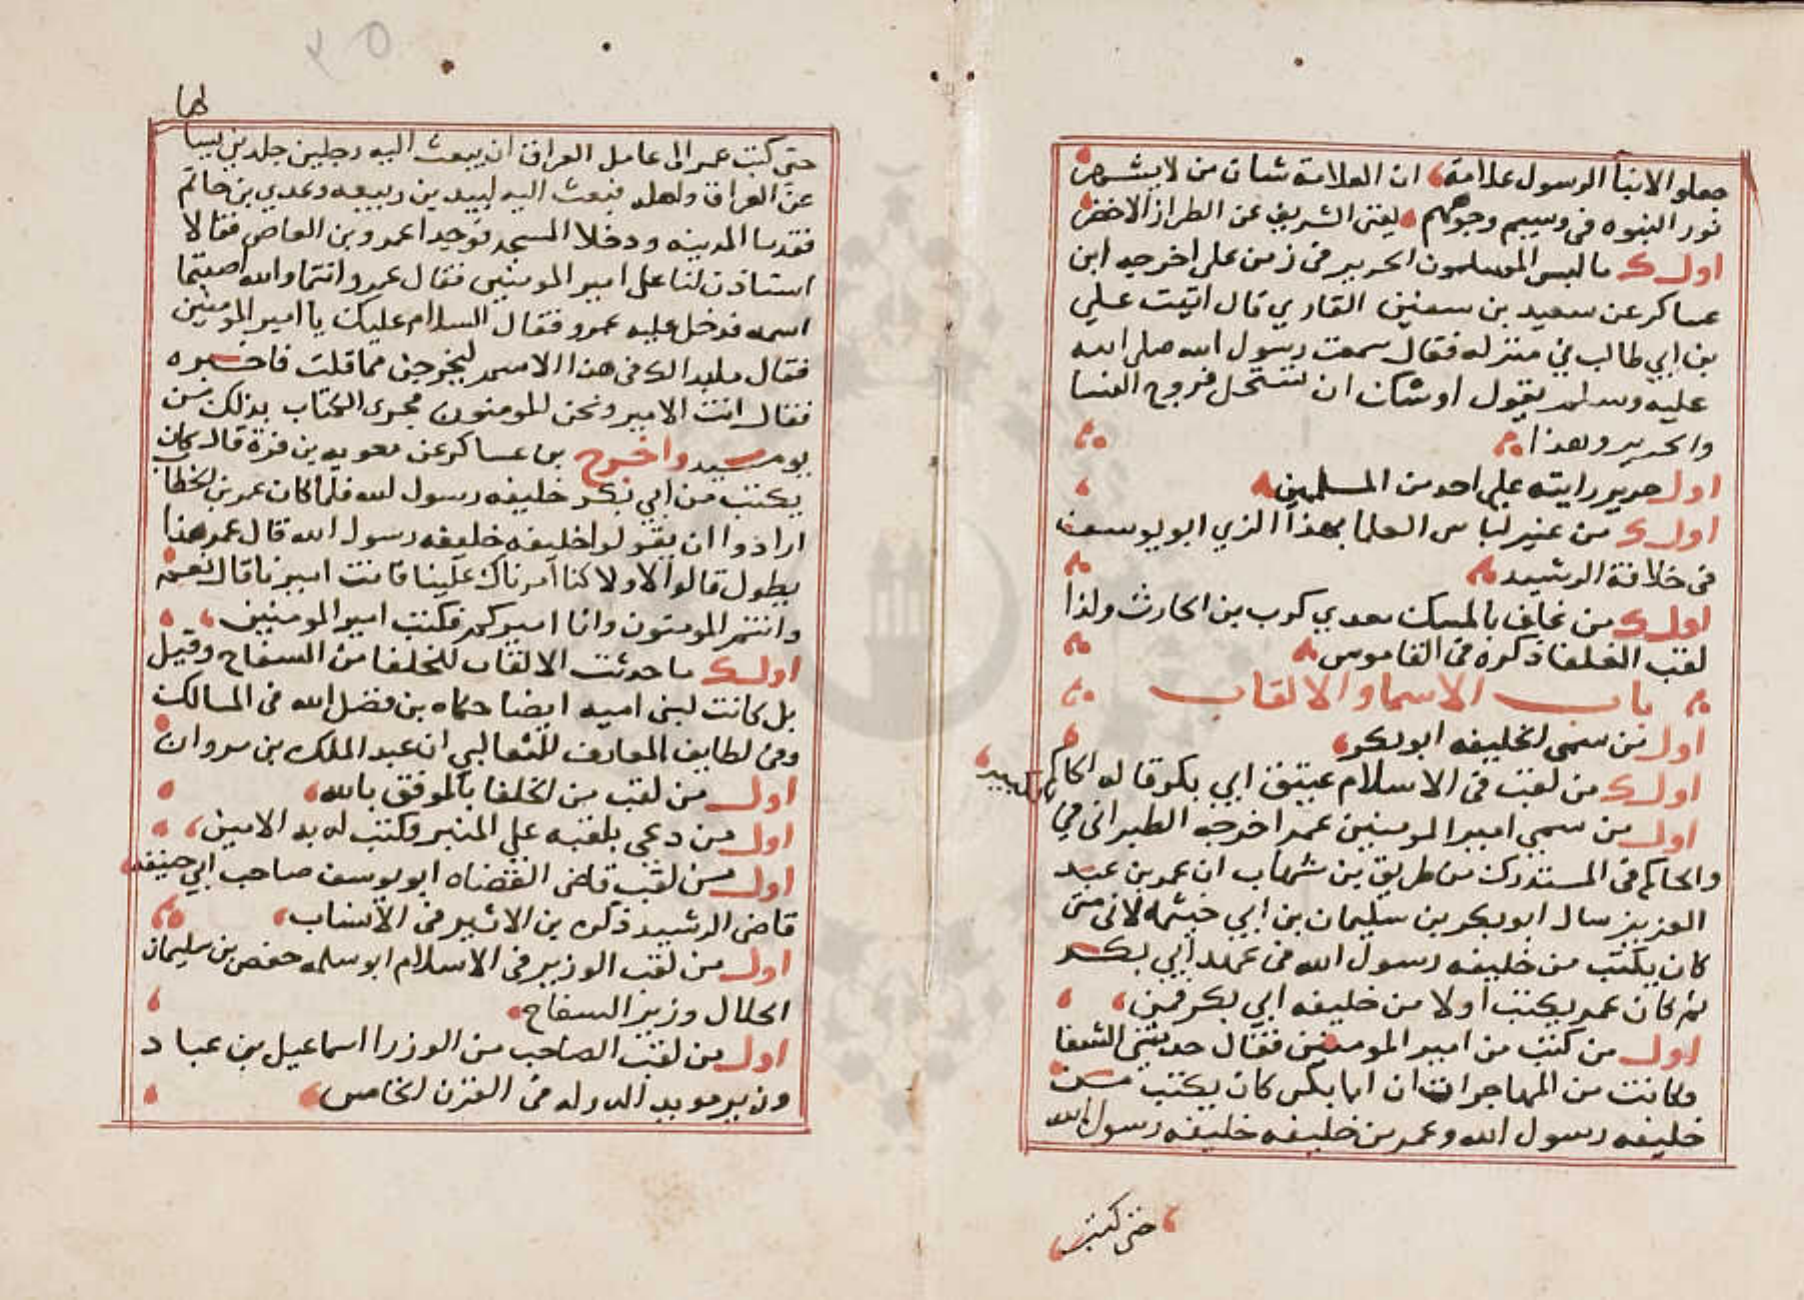 جعلو الابنا الرسول علامة ان العلامة شان من لا يشهر
نور النبوه فى وسيم وجوههم يغنى الشريف عن الطراز الاخضر
اول ما لبس المسلمون الحرير فى زمن على اخرجه ابن
عساكر عن سعيد بن سفين القاري قال اتيت علي
بن ابي طالب في منزله فقال سمعت رسول الله صلى الله
عليه وسلم يقول اوشك ان تستحل فروج النسا
والحرير وهذا
اول حرير رايته علي احد من المسلمين
اول من غير لباس العلما بهذا الزي ابو يوسف
فى خلافة الرشيد
اول من غلف بالمسك معدي كرب بن الحارث ولذا
لقب الغلفا ذكره فى القاموس
باب الاسما والالقاب
اول من سمى الخليفه ابو بكر
اول من لقب فى الاسلام عتيق ابي بكر قاله الحاكم
اول من سمى امير المومنين عمر اخرجه الطبرانى في
والحاكم فى المستدرك من طريق بن شهاب ان عمر بن عبد
العزيز سال ابو بكر بن سليمان بن ابي خيثمه لانى متى
كان يكتب من خليفه رسول الله فى عهد ابي بكر
ثم كان عمر يكتب اولا من خليفه ابي بكر فمن
اول من كتب من امير المومنين فقال حدثتنى الشفا
وكانت من المهاجرات ان ابا بكر كان يكتب من
خليفه رسول الله وعمر من خليفه خليفه رسول الله
حتى كتب
حتى كتب عمر الى عامل العراق ان يبعث اليه رجلين جلدين يسا
لها
عن العراق واهله فبعث اليه لبيد بن ربيعه وعدي بن حاتم
فقدما المدينه ودخلا المسجد فوجدا عمرو بن العاص فقالا
استاذن لنا على امير المومنين فقال عمرو انتما والله اصبتما
اسمه فدخل عليه عمرو فقال السلام عليك يا امير المومنين
فقال ما بدا لك فى هذا الاسم لتخرجن مما قلت فاخبره
فقال انت الامير ونحن المومنون فجرى الكتاب بذلك من
يوميد واخرج بن عساكر عن معويه بن قرة قال كان
يكتب من ابي بكر خليفه رسول الله فلما كان عمر بن الخطاب
ارادوا ان يقولوا خليفه خليفه رسول الله قال عمر هذا
يطول قالوا لا ولاكنا امرناك علينا فانت اميرنا قال نعم
وانتم المومنون وانا اميركم فكتب امير المومنين
اول ما حدثت الالقاب للخلفا من السفاح وقيل
بل كانت لبنى اميه ايضا حكاه بن فضل الله فى المسالك
وفى لطايف المعارف للثعالبي ان عبد الملك بن مروان
اول من لقب من الخلفا بالموفق بالله
اول من دعى بلقبه علي المنبر وكتب له به الامين
اول من لقب قاضى القضاه ابو يوسف صاحب ابي حنيفه
قاضى الرشيد ذكره بن الاثير فى الانساب
اول من لقب الوزير فى الاسلام ابو سلمه حفص بن سليمان
الخلال وزير السفاح
اول من لقب الصاحب من الوزرا اسماعيل بن عباد
وزير مويد الدوله فى القرن الخامس